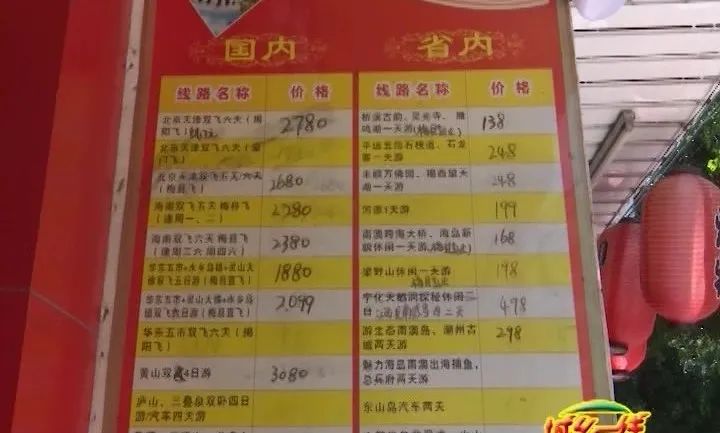 国内
线路名称 价格
北京天津双飞六天（揭
阳飞） 2780
北京天津双飞六天（厦
门飞）
北京天津双飞五天/六天
（梅县飞） 2680
海南双飞五天 梅县飞
（逢周一、二） 2280
海南双飞六天 梅县飞
（逢周三六 周四六） 2380
华东五市+水乡乌镇+灵山大
双飞五日游（梅县直飞） 1880
华东五市+灵山大佛+水乡乌
镇双飞六日游（梅县直飞） 2,099
华东五市双飞六天（揭
阳飞）
黄山双 4日游 3080
庐山、三叠泉双卧四日
游/汽车四天游
省内
线路名称 价格
桥溪古韵、灵光寺、雁
鸣湖一天游 138
平远五指石栈道、石龙
寨一天游 248
丰顺万佛园、揭西望天
湖一天游 248
河源1天游 199
南澳跨海大桥、海岛新
貌休闲一天游 168
梁野山休闲一天游 198
宁化天鹅洞探秘休闲二
日 498
游生态南澳岛、潮州古
城两天游 298
魅力海岛南澳出海捕鱼，
总兵府两天游
东山岛汽车两天
城乡一线